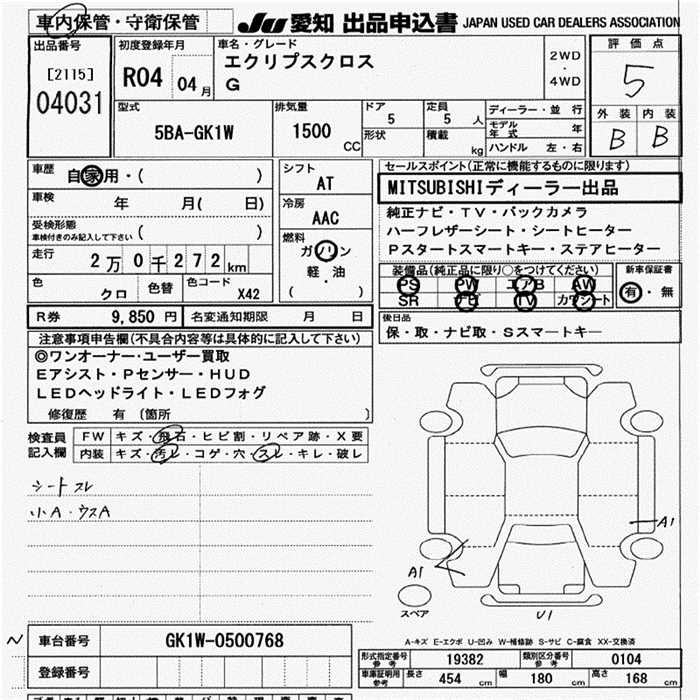 車内保管・守衛保管 JU 愛知 出品申込書 JAPAN USED CAR DEALERS ASSOCIATION
出品番号
[2115]
04031
初度登録年月
R04 04月
車名・グレード
エクリプスクロス
G
2WD
・
4WD
評価点
5
外装 内装
B B
型式
5BA-GK1W
排気量
1500 CC
ドア 5
形状
定員 5 人
積載 kg
ディーラー・並 行
モデル年式 年
ハンドル 左・右
車歴 自家用・( )
車検 年 月( 日)
受検形態
車検付きのみ記入して下さい ( )
走行 2万0千272km
色 クロ 色替 色コード X42
シフト
AT
冷房
AAC
燃料
ガソリン
・
軽・油
( )
R券 9,850円 名変通知期限 月 日
セールスポイント(正常に機能するものに限ります)
MITSUBISHIディーラー出品
純正ナビ・TV・バックカメラ
ハーフレザーシート・シートヒーター
Pスタートスマートキー・ステアヒーター
装備品(純正品に限り○をつけてください)
PS PW エアB AW
SR ナビ TV カワシート
新車保証書
有・無
後日品
保・取・ナビ取・Sスマートキー
注意事項申告欄(不具合内容等は具体的に記入して下さい)
◎ワンオーナー・ユーザー買取
Eアシスト・Pセンサー・HUD
LEDヘッドライト・LEDフォグ
修復歴 有 (箇所 )
検査員記入欄
FW キズ・飛石・ヒビ割・リペア跡・X要
内装 キズ・汚レ・コゲ・穴・スレ・キレ・破レ
シートスレ
小A・ウスA
A1
A1
スペア
U1
A-キズ E-エクボ U-凹み W-補修跡 S-サビ C-腐食 XX-交換済
車台番号 GK1W-0500768
登録番号
形式指定番号 参考 19382 類別区分番号 参考 0104
車庫証明用 参考 長さ 454 cm 幅 180 cm 高さ 168 cm